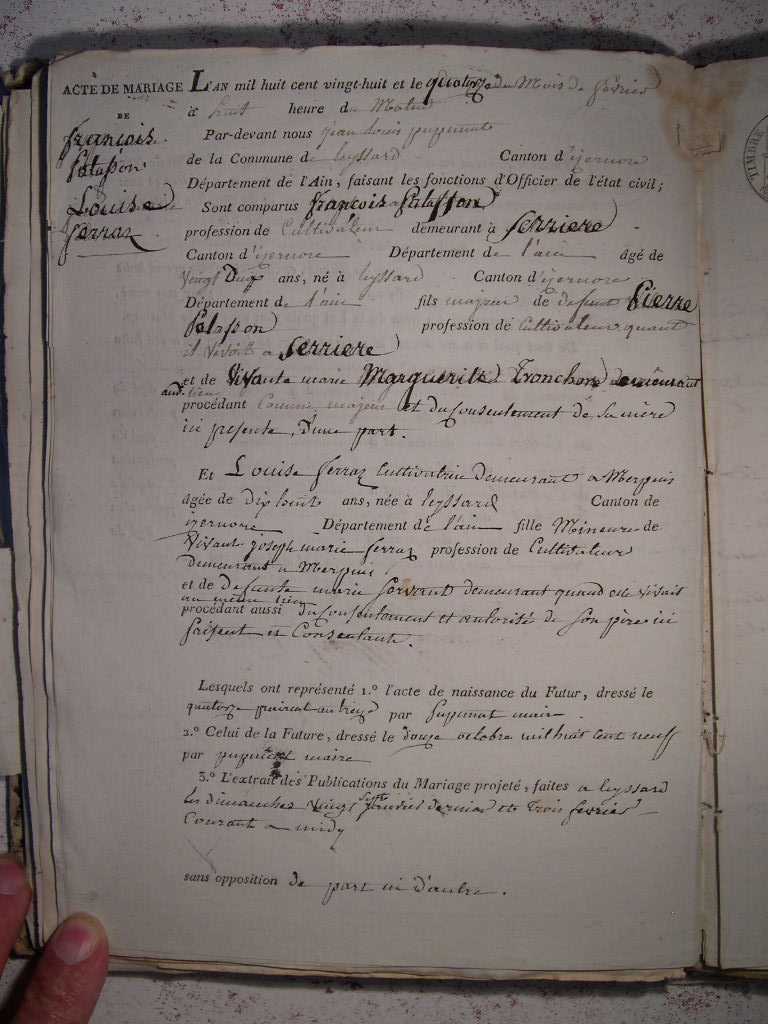 ACTE DE MARIAGE
DE
françois
Palasson
Louise
ferraz
L'AN mil huit cent vingt-huit et le quatorze du Mois de février
à huit heure du Matin
Par-devant nous jean louis pupunat
de la Commune de leyssard Canton d'izernore
Département de l'Ain, faisant les fonctions d'Officier de l'état civil;
Sont comparus françois Palasson
profession de Cultivateur demeurant à Serriere
Canton d'izernore Département de l'ain âgé de
vingt ans, né à leyssard Canton d'izernore
Département de l'ain fils majeur de defunt Pierre
Palasson profession de Cultivateur quant
il vivoit a Serriere
et de vivante marie Marguerite Tronchon demeurant
audit lieu
procédant Comme majeur et du consentement de sa mère
ici presente, d'une part.
Et Louise ferraz Cultivatrice demeurant a Merpuis
âgée de dix huit ans, née à leyssard Canton de
izernore Département de l'ain fille Mineure de
vivant joseph marie ferraz profession de Cultivateur
demeurant a Merpuis
et de defunte marie Servant demeurant quand elle vivait
au même lieu
procédant aussi du consentement et autorité de son père ici
présent et Consentant.
Lesquels ont représenté 1.° l'acte de naissance du Futur, dressé le
quatorze par pupunat maire
2.° Celui de la Future, dressé le douze octobre mil huit cent neuf
par pupunat maire
3.° L'extrait des Publications du Mariage projeté, faites a leyssard
les dimanches vingt sept janvier dernier et trois fevrier
Courant a midy
sans opposition de part ni d'autre.